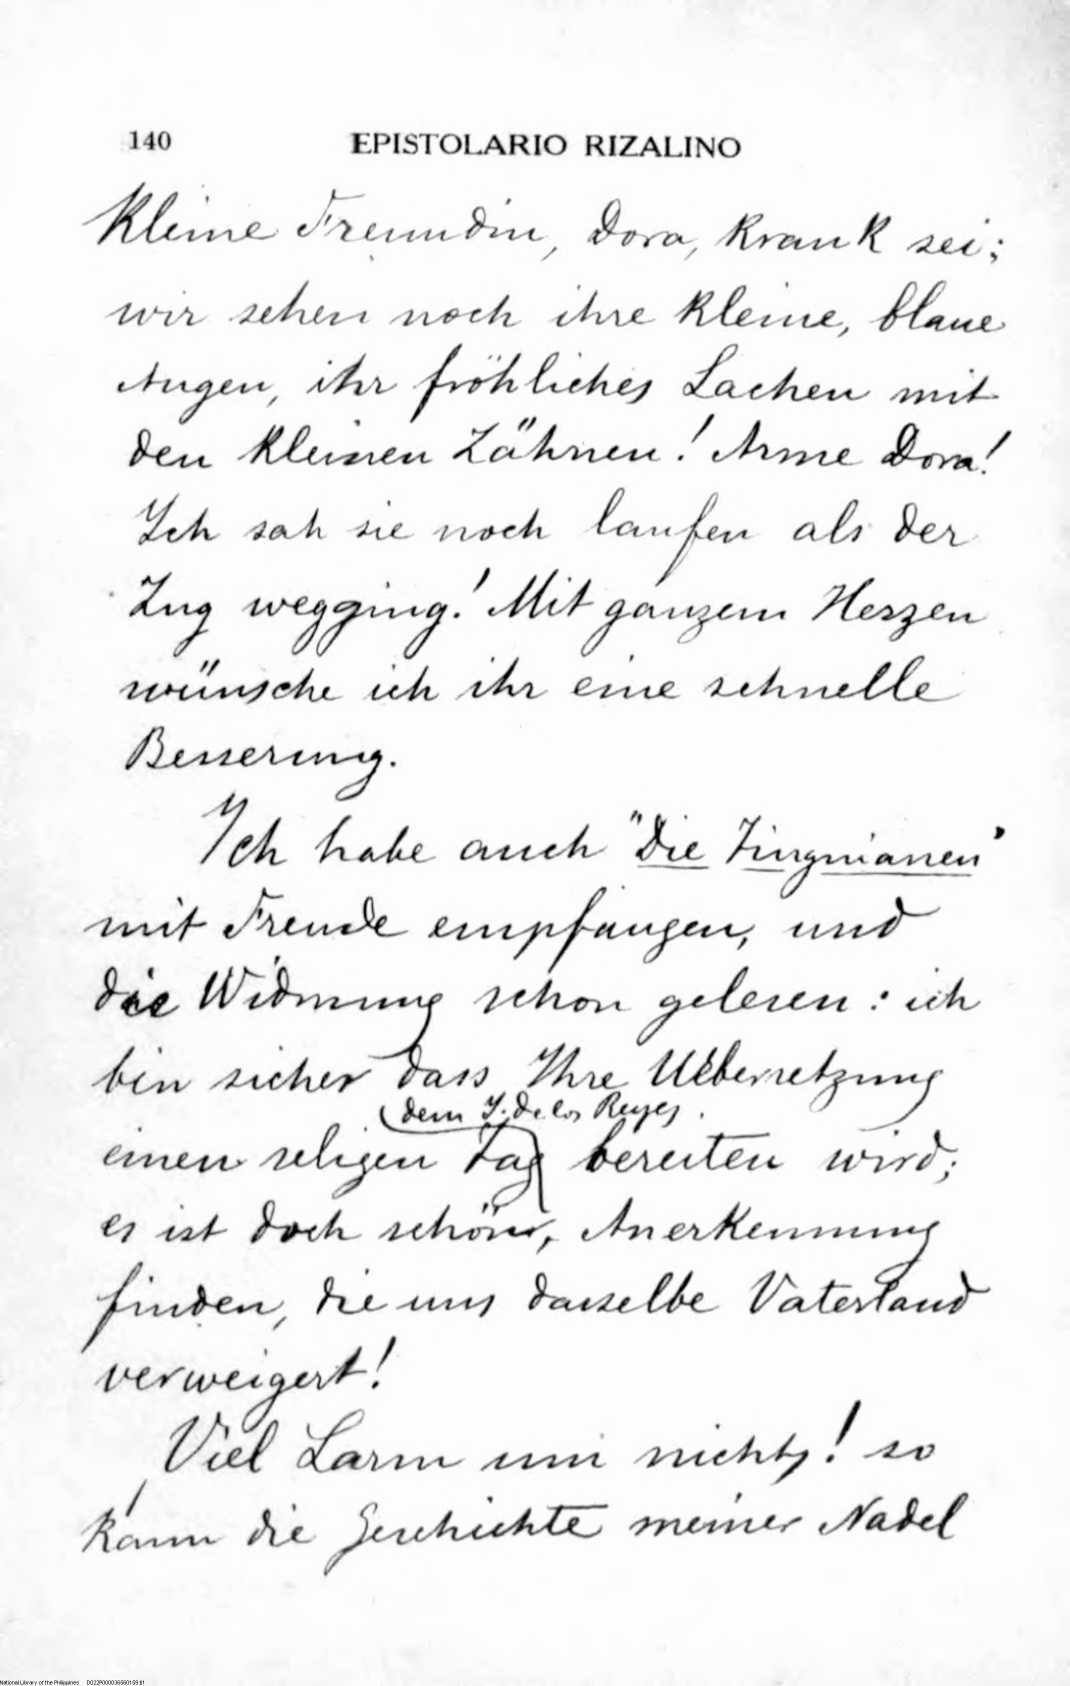 140 EPISTOLARIO RIZALINO
kleine Freundin, Dora, krank sei;
wir sehen noch ihre kleine, blaue
Augen, ihr fröhliches Lachen mit
den kleinen Zähnen! Arme Dora!
Ich sah sie noch laufen als der
Zug wegging! Mit ganzem Herzen
wünsche ich ihr eine schnelle
Besserung.
Ich habe auch "Die Tinguianen"
mit Freude empfangen, und
die Widmung schon gelesen: ich
bin sicher dass Ihre Uebersetzung
dem I. de los Reyes
einen seligen Tag bereiten wird;
es ist doch schön, Anerkennung
finden, die uns dasselbe Vaterland
verweigert!
Viel Larm um nichts! so
kann die Geschichte meiner Nadel
National Library of the Philippines